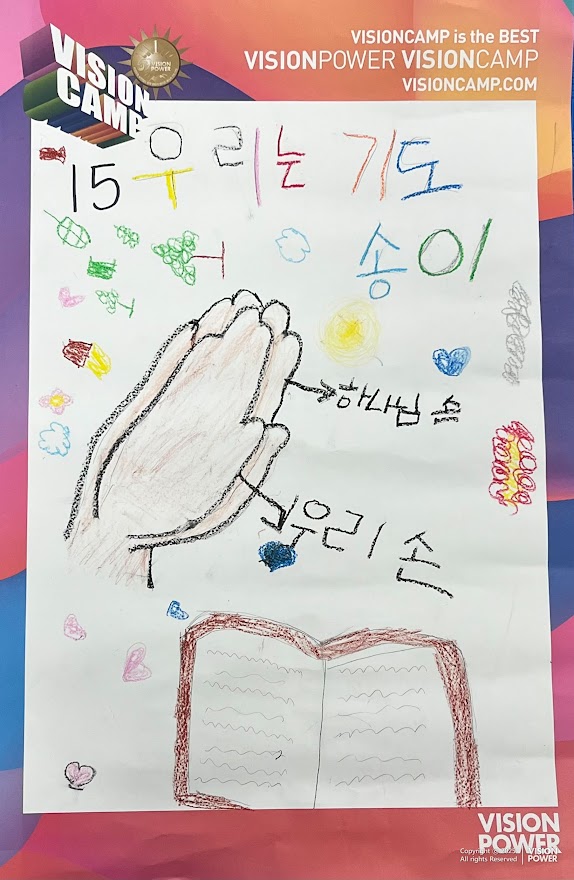 VISIONCAMP is the BEST
VISIONPOWER VISIONCAMP
VISIONCAMP.COM
VISION
CAMP
VISION
POWER
15 우리는 기도
송이
하나님 손
우리 손
VISION
POWER
Copyright © 2025
All rights Reserved
VISION
POWER